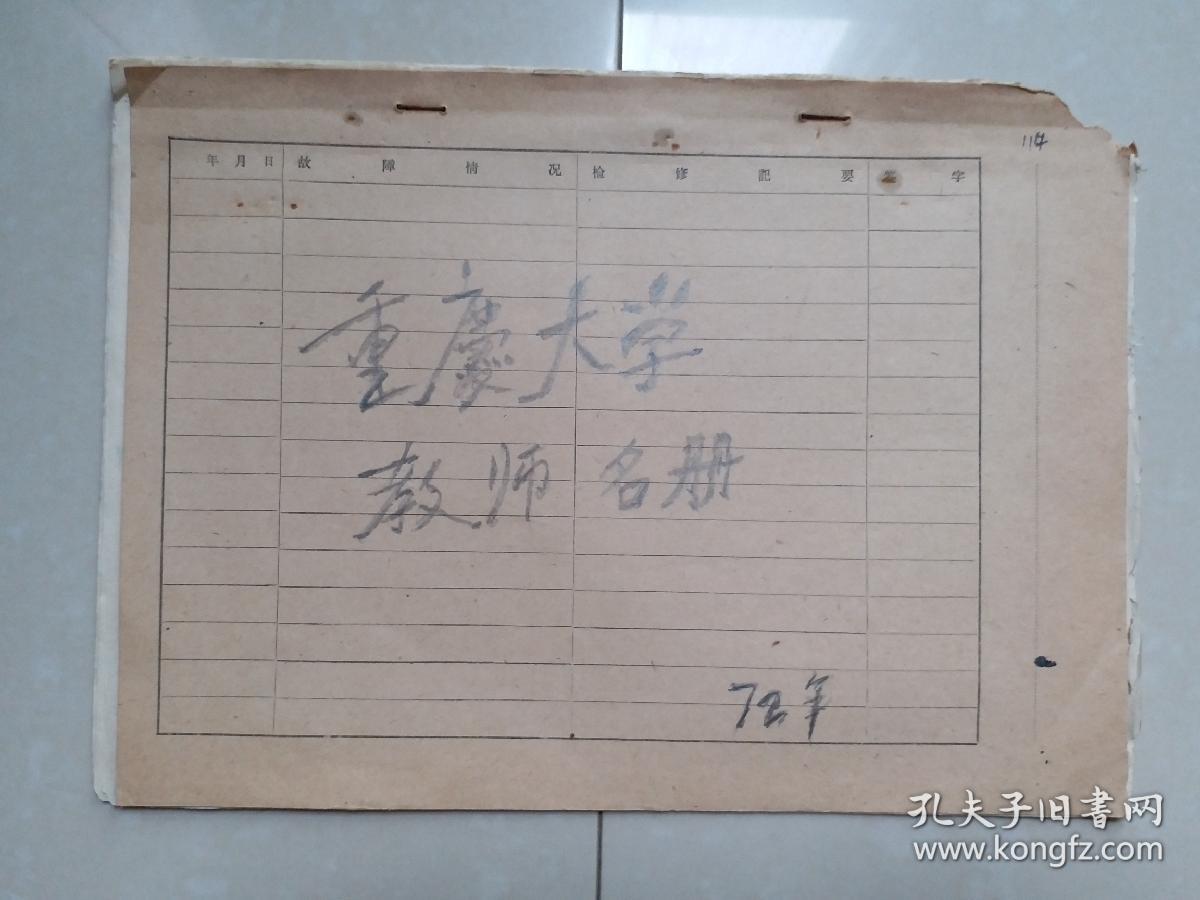 114
年 月 日 故 障 情 况 检 修 記 要 签 字
重慶大学
教师名册
孔夫子旧书网
www.kongfz.com